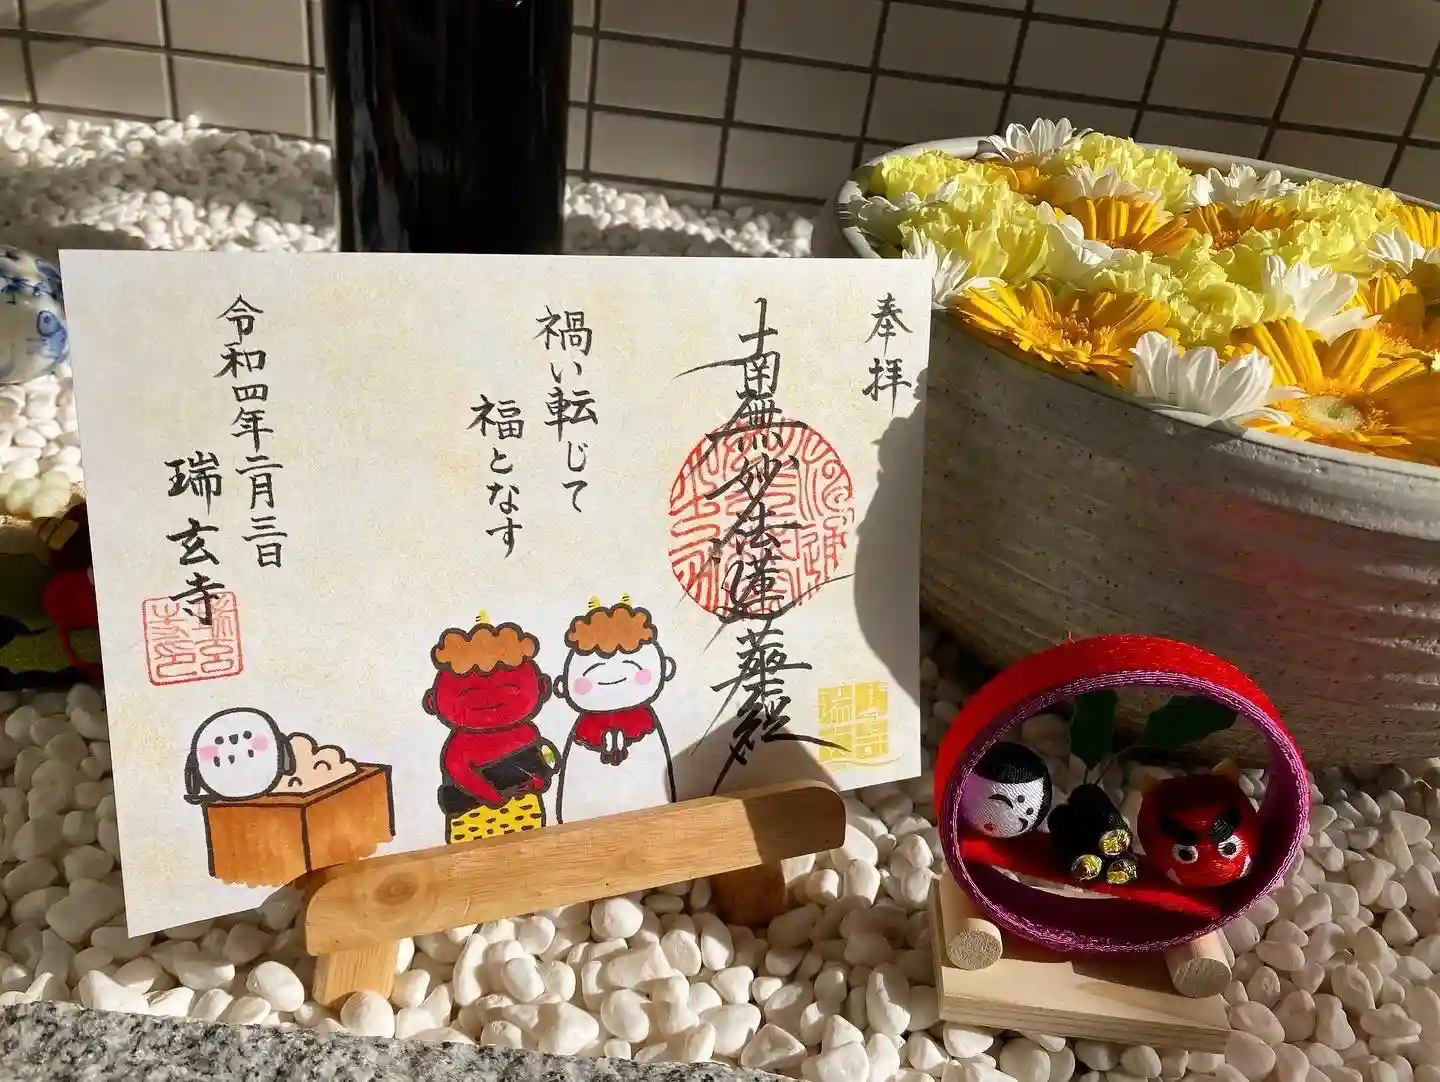 奉拝
南無妙法蓮華経
禍い転じて
福となす
令和四年二月三日
瑞玄寺